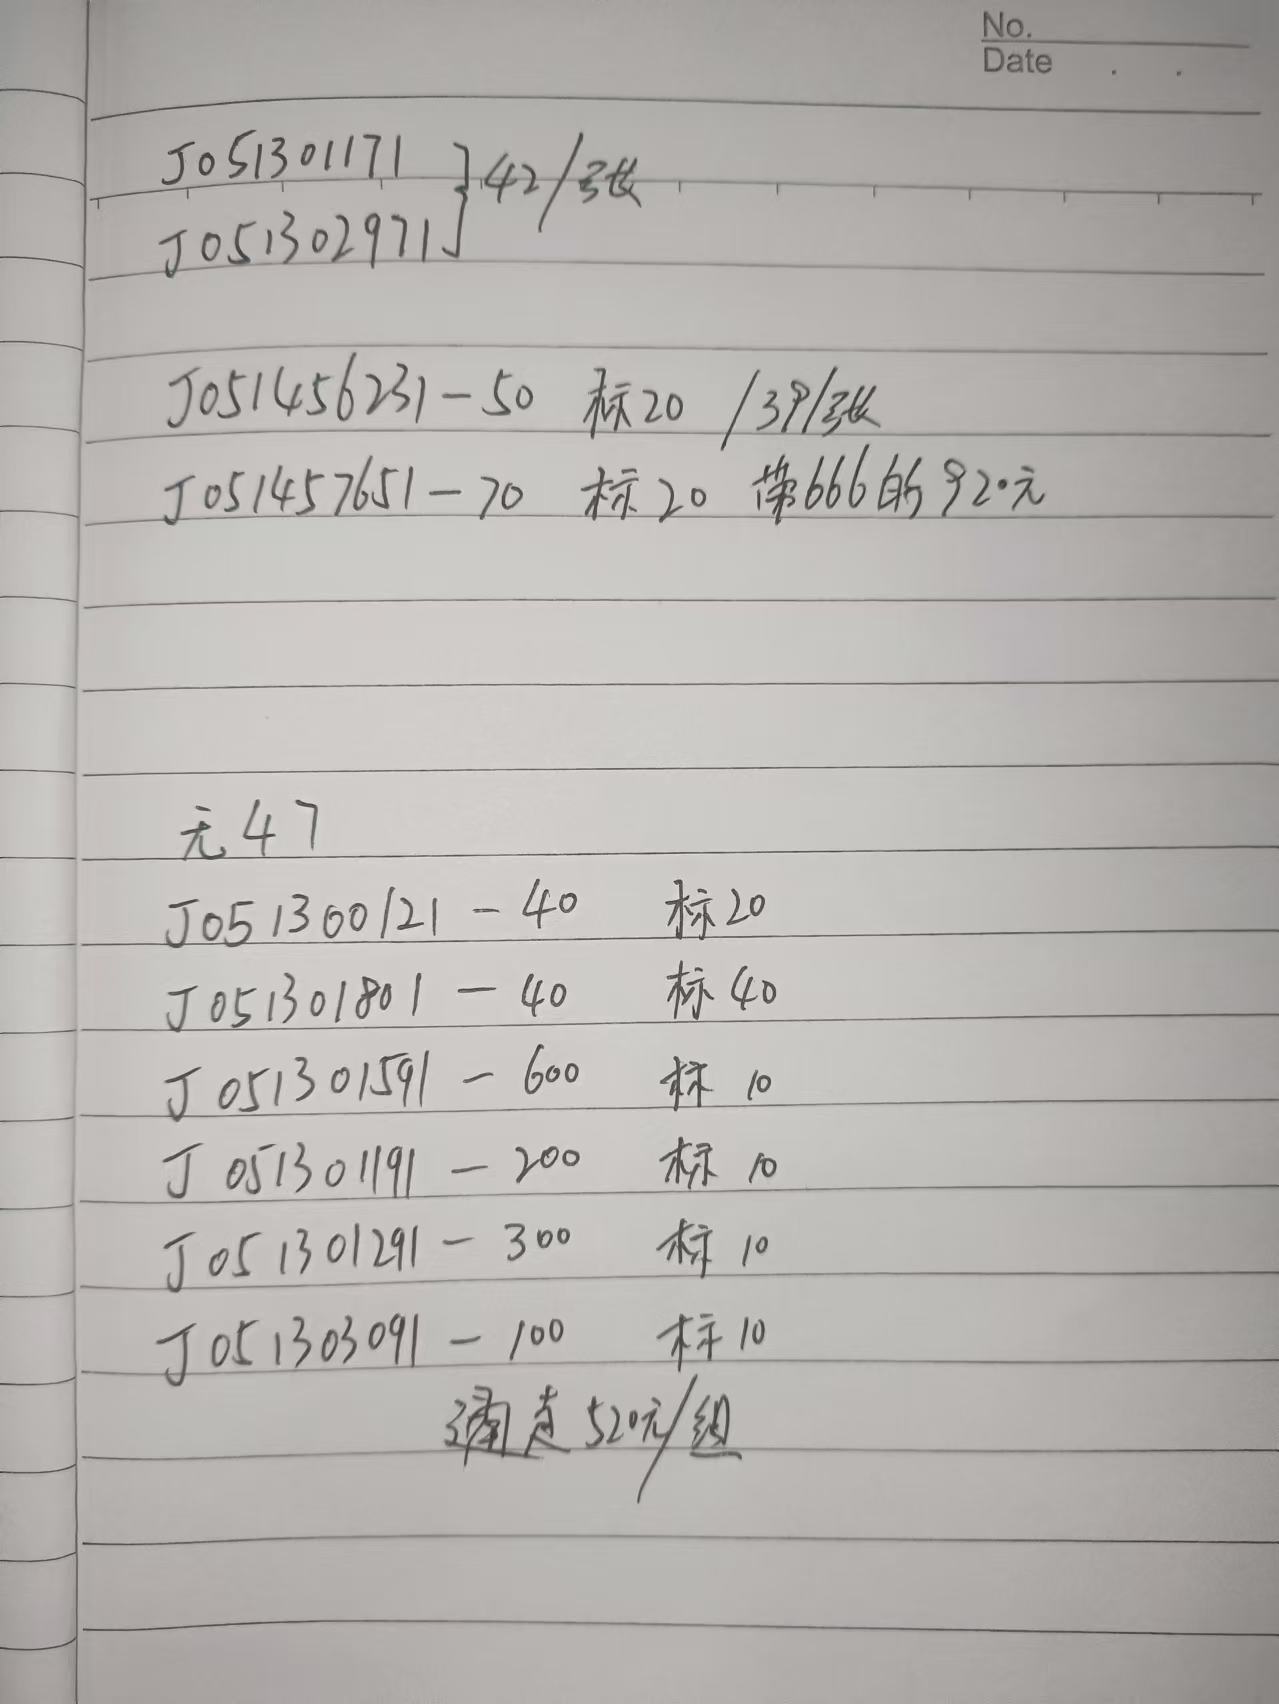 No.
Date . .
J051301171 ] 42/张
J051302971
J051456231-50 标20 /39/张
J051457651-70 标20 带666的920元
无47
J051300121-40 标20
J051301801-40 标40
J051301591-600 标10
J051301191-200 标10
J051301291-300 标10
J051303091-100 标10
通走520元/组